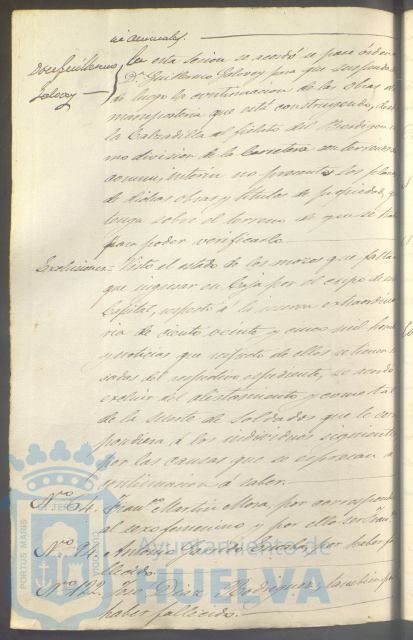 ni acuerdos.
Don Guillermo
Sobrevy
En esta sesion se acordó se pase órden á
Dn. Guillermo para que suspenda
de luego la continuacion de las obras de
mamposteria que está construyendo, 
la Calzadilla al fielato del
mo division de la Carretera en terreno
comun, interin no presente los planos
de dichas obras y títulos de propiedad, que
tenga sobre el terreno de que se
para poder verificarlo.
Exclusiones = Visto el estado de los mozos que faltan
que ingresar en Caja por el cupo de esta
Capital, respecto á la reserva extraordina
ria de ciento veinte y cinco mil hombres
y noticias que respecto de ellos se tienen
del respectivo expediente, se acordó
excluir del alistamiento y como tal
de la suerte de Soldados que le corres
pondiera á los individuos siguientes
por las causas que se espresan á
continuacion á saber.
Nº. 54. Franco. Martin Mora, por corresponder
al sexo femenino, y por ello ser Franca.
Nº. 74. Antonio por haber fa
llecido.
Nº. 122. José Diaz Rodriguez, tambien por
haber fallecido.
PORTUS MARIS
CUSTODIA
Ayuntamiento de
HUELVA